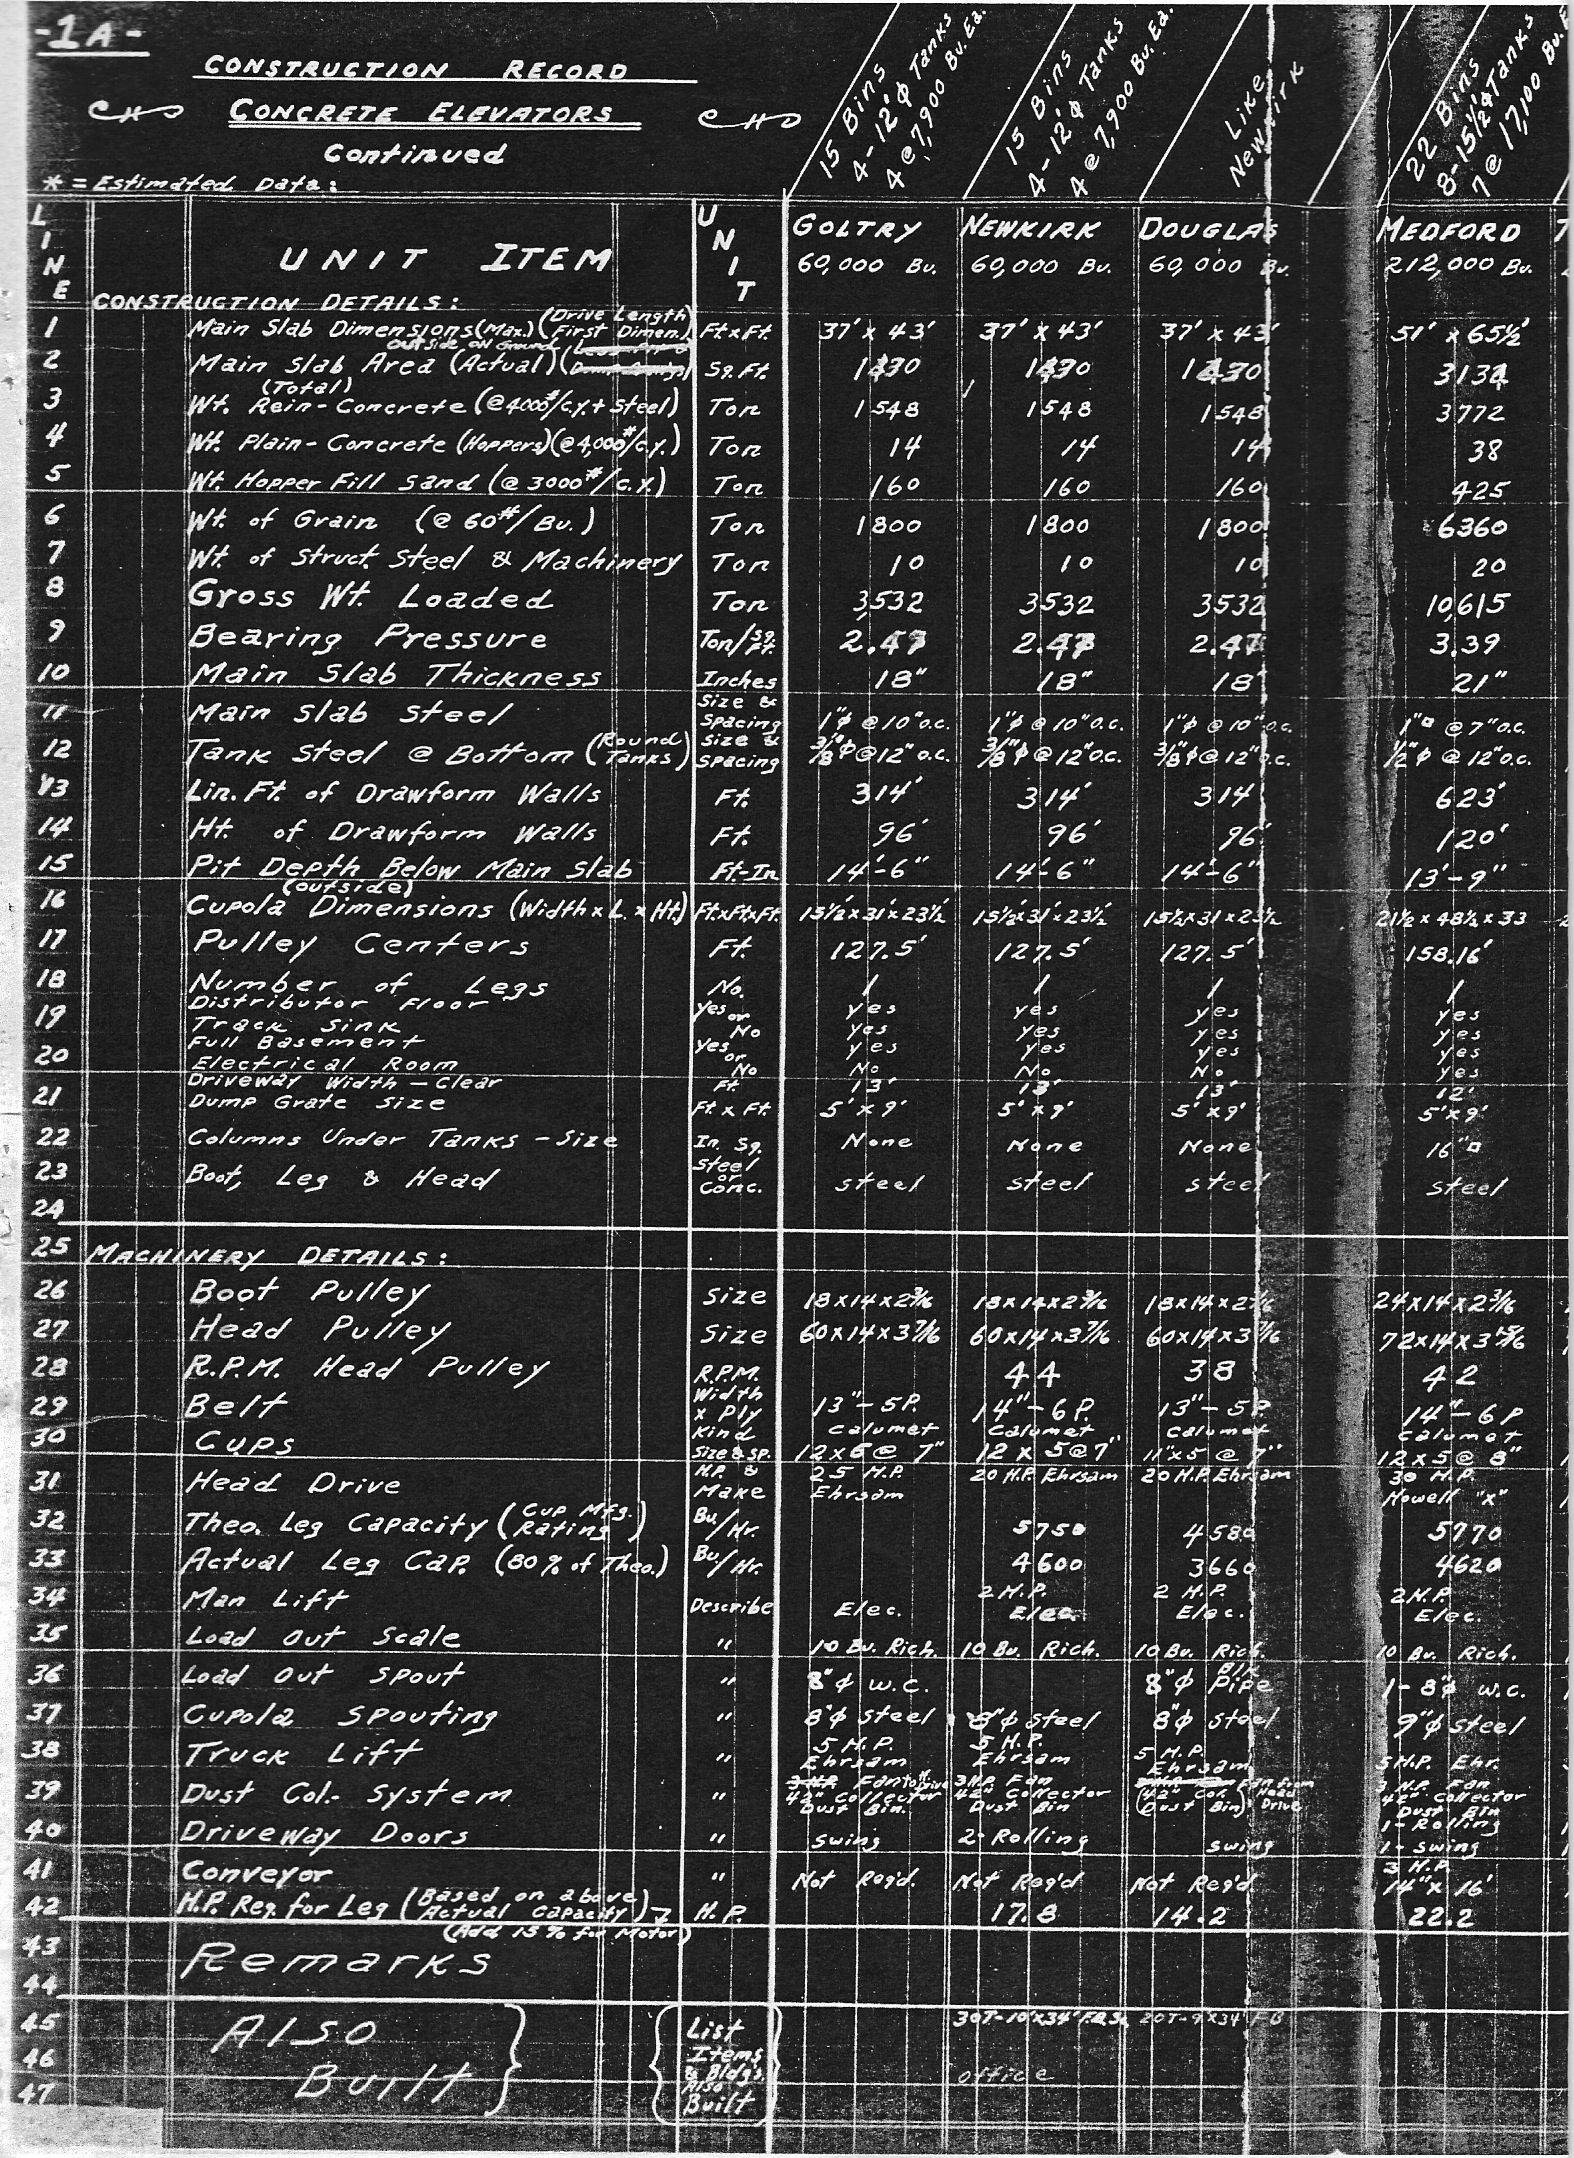 -1A-
CONSTRUCTION RECORD
CHO CONCRETE ELEVATORS CHO
Continued
* = Estimated Data:
15 Bins
4-12'φ Tanks
4 @ 7,900 Bu. Ea.
15 Bins
4-12'φ Tanks
4 @ 7,900 Bu. Ea.
Like
Newkirk
22 Bins
8-15½'φ Tanks
7 @ 17,100 Bu. E
LINE UNIT ITEM UNIT GOLTRY NEWKIRK DOUGLAS MEDFORD
60,000 Bu. 60,000 Bu. 60,000 Bu. 212,000 Bu.
CONSTRUCTION DETAILS:
1 Main Slab Dimensions (Max.) (Drive Length First Dimen.) Ft x Ft. 37' x 43' 37' x 43' 37' x 43' 51' x 65½'
2 Main Slab Area (Actual) (Outside on Ground Sq. Ft. 1430 1430 1430 3134
3 Wt. (Total) Rein-Concrete (@ 4000#/c.y. + Steel) Ton 1548 1548 1548 3772
4 Wt. Plain-Concrete (Hoppers) (@ 4,000#/c.y.) Ton 14 14 14 38
5 Wt. Hopper Fill Sand (@ 3000#/c.y.) Ton 160 160 160 425
6 Wt. of Grain (@ 60#/Bu.) Ton 1800 1800 1800 6360
7 Wt. of Struct. Steel & Machinery Ton 10 10 10 20
8 Gross Wt. Loaded Ton 3,532 3532 3532 10,615
9 Bearing Pressure Ton/Sq. Ft. 2.47 2.47 2.47 3.39
10 Main Slab Thickness Inches 18" 18" 18" 21"
11 Main Slab Steel Size & Spacing 1"φ @ 10" o.c. 1"φ @ 10" o.c. 1"φ @ 10" o.c. 1"□ @ 7" o.c.
12 Tank Steel @ Bottom (Round Tanks) Size & Spacing 3/8"φ @ 12" o.c. 3/8"φ @ 12" o.c. 3/8"φ @ 12" o.c. ½"φ @ 12" o.c.
13 Lin. Ft. of Drawform Walls Ft. 314' 314' 314 623'
14 Ht. of Drawform Walls Ft. 96' 96' 96' 120'
15 Pit Depth Below Main Slab Ft-In 14'-6" 14'-6" 14'-6" 13'-9"
16 Cupola (outside) Dimensions (Width x L. x Ht.) Ft.xFt.xFt. 15½'x31'x23½' 15½'x31'x23½' 15½x31x23½ 21½ x 48½ x 33
17 Pulley Centers Ft. 127.5' 127.5' 127.5' 158.16'
18 Number of Legs No. 1 1 1 1
Distributor Floor Yes or yes yes yes yes
19 Track Sink No yes yes yes yes
Full Basement Yes or yes yes yes yes
20 Electrical Room No No No No yes
Driveway Width - Clear Ft. 13' 13' 13' 12'
21 Dump Grate Size Ft. x Ft. 5' x 9' 5' x 9' 5' x 9' 5'x9'
22 Columns Under Tanks - Size In. Sq. None None None 16"□
23 Boot, Leg & Head Steel or Conc. Steel Steel Steel Steel
24
25 MACHINERY DETAILS:
26 Boot Pulley Size 18x14x2 3/16 18x14x2 3/16 18x14x2 3/16 24x14x2 3/16
27 Head Pulley Size 60x14x3 7/16 60x14x3 7/16 60x14x3 7/16 72x14x3 15/16
28 R.P.M. Head Pulley R.P.M. 44 38 42
29 Belt Width x Ply 13"-5P. 14"-6P. 13"-5P 14"-6P
30 Cups Kind Calumet Calumet Calumet Calumet
Size & Sp. 12x6 @ 7" 12 x 5@7" 11"x5 @ 7" 12x5 @ 8"
31 Head Drive H.P. & Make 25 H.P. Ehrsam 20 H.P. Ehrsam 20 H.P. Ehrsam 30 H.P. Howell "X"
32 Theo. Leg Capacity (Cup Mfg. Rating) Bu/Hr. 5750 4580 5770
33 Actual Leg Cap. (80% of Theo.) Bu/Hr. 4600 3660 4620
34 Man Lift Describe Elec. 2 H.P. Elec. 2 H.P. Elec. 2 H.P. Elec.
35 Load Out Scale " 10 Bu. Rich. 10 Bu. Rich. 10 Bu. Rich. 10 Bu. Rich.
36 Load Out Spout " 8"φ W.C. 8"φ Blk Pipe 1-8"φ W.C.
37 Cupola Spouting " 8"φ Steel 8"φ Steel 8"φ Steel 9"φ Steel
38 Truck Lift " 5 H.P. Ehrsam 5 H.P. Ehrsam 5 H.P. Ehrsam 5 H.P. Ehr.
39 Dust Col. System " 3 H.P. Fan 42" Collector Dust Bin. 3 H.P. Fan 42" Collector Dust Bin Fan from Head Drive (42" Col. Dust Bin) 3 H.P. Fan 42" Collector Dust Bin
40 Driveway Doors " Swing 2-Rolling Swing 1-Rolling 1-Swing
41 Conveyor " Not Req'd. Not Req'd Not Req'd 3 H.P. 14" x 16'
42 H.P. Req. for Leg (Based on above Actual Capacity) H.P. 17.8 14.2 22.2
(Add 15% for Motor)
43 Remarks
44
45 Also List 30T-10'x34' F.B.Sc. 20T-9'x34' F B
46 Built Items & Bldgs. office
47 Also Built